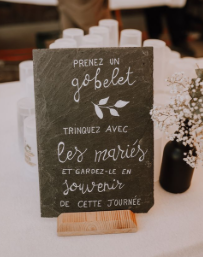 PRENEZ UN
gobelet
TRINQUEZ AVEC
les mariés
ET GARDEZ-LE EN
souvenir
DE CETTE JOURNÉE